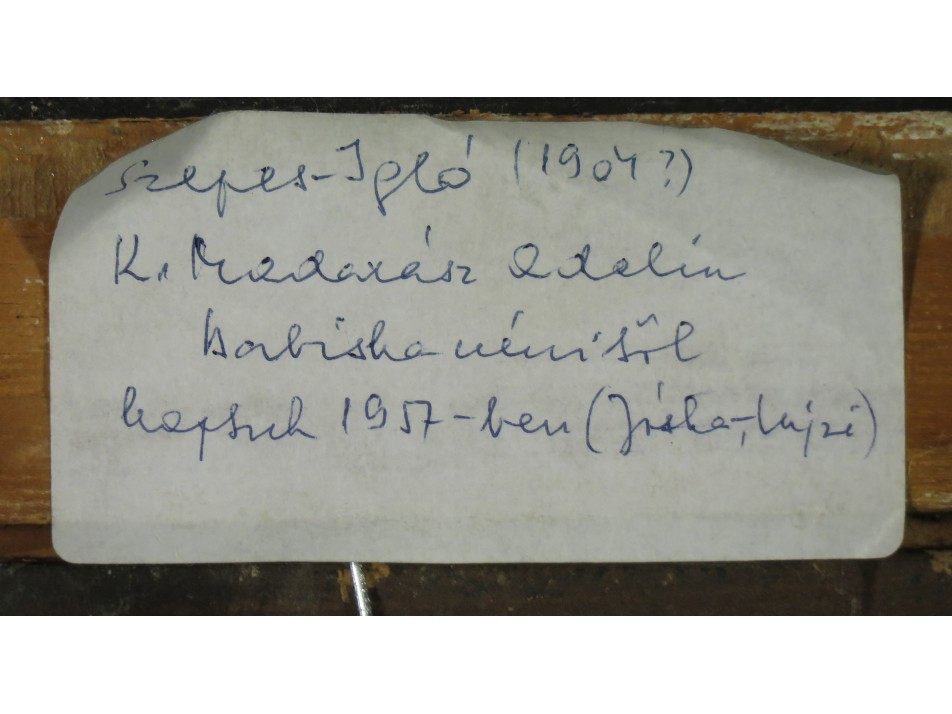 Szepes-Igló (1904?)
K. Madarász Adelin
nénitől
kaptuk 1957-ben (Jóska,